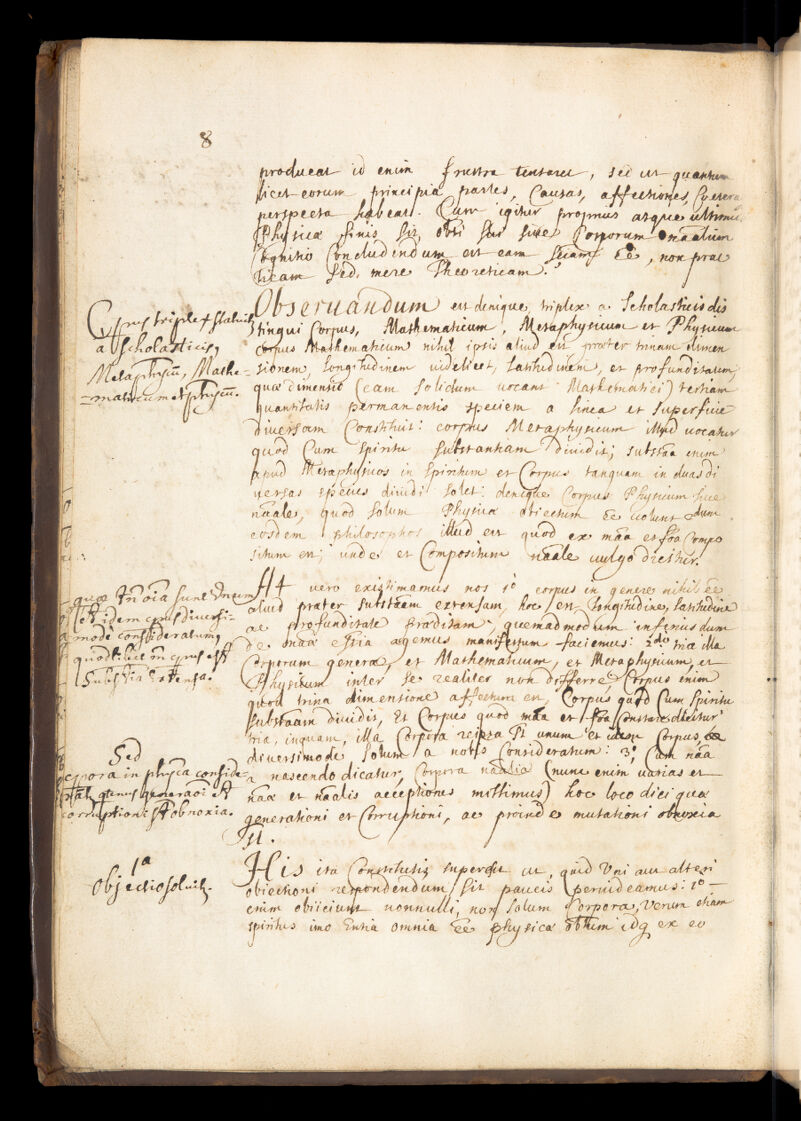 8
producat id enim frustra tentaret, sed ut quantum
licet eorum principia partes, causas, affectiones, Cætera
perspecta habeat. Cum igitur proximus atque ultimus
Physicæ finis sit, sive Corporum nāālium
Cognitio Concludendum est eam ēē, non prac
ticam sed mere Theoreticam.
Corpus triplex statuit~
a scholasticis,
Metaphysicū, Mathe-
-maticum et physicū.
Observandum est denique triplex a Scholasticis dis
tingui Corpus, Mathematicum, Metaphysicum et Physicum
corpus Mathematicum nihil ipsis aliud est præter trinam dimen
sionem, Longitudinem videlicet, Latitudinem, et profunditatem,
quæ dimensio (eam solidum vocant Mathematici) tertiam
quantitatis permanentis speciem a linea et superficie
diversam Constituit: corpus Metaphysicum illud vocatur
quod Cum spiritu substantiam dividit; substāā enim
apud Metaphysicos in spiritum et Corpus tanquam in duas di
versas species dividi solet: denique Corpus Physicum sive
nāāle, quod solum Physicæ obiectum ēē volunt dum
eosdem philosophos illud est quod ex māā et fōā compo
situm est; unde et Compositum nāāle vulgo dicitur.
quæ tn̄ oīā sunt unum
et idem corpus diversi-
mode consideratum,
quodlibet n̄ corpus est
substīā extensa.
At vero existimamus nos 1º corpus in genere nihil ēē
aliud præter substāām extensam, hoc est Longitudine, Latitudine
ac profunditate præditam, quemadmodum inferius dum
de māā agemus manifestum faciemus: 2do tria illa
Corporum genera, et Mathematicum, et Metaphysicum, et
Physicum inter se realiter non differre Corpus enim
quod trina dimensione affectum est, Corpus quod Cum Spiritu
substāām dividit, et Corpus quod māā et fōā Constare dicitur
tria, inquam, illa Corpora reipsa st unum et idem Corpus,
diversimode solum a nobis Consideratum: 3º Cum nāā
Sed
corpora in physica conside-
rāt quatenus generāōī et
corruptioni st obnoxia.
a nascendo dicatur, Corpora nāālia (nunc enim varias et
nāā et nāālis acceptiones mittimus) hoc loco dici quæ
generationi et Corruptioni, ac proinde mutationi obnoxia
st.
1ª
Objectio solvit~.
His ita Constitutis superest ut, quid Uni aut alteri
obiectioni respondendum sit paucis pervideamus: 1º
enim obiiciunt nonnulli, non solum Corpora, Verum etiam
spiritus imo Entia omnia ēē physicæ obtum idq ex eo